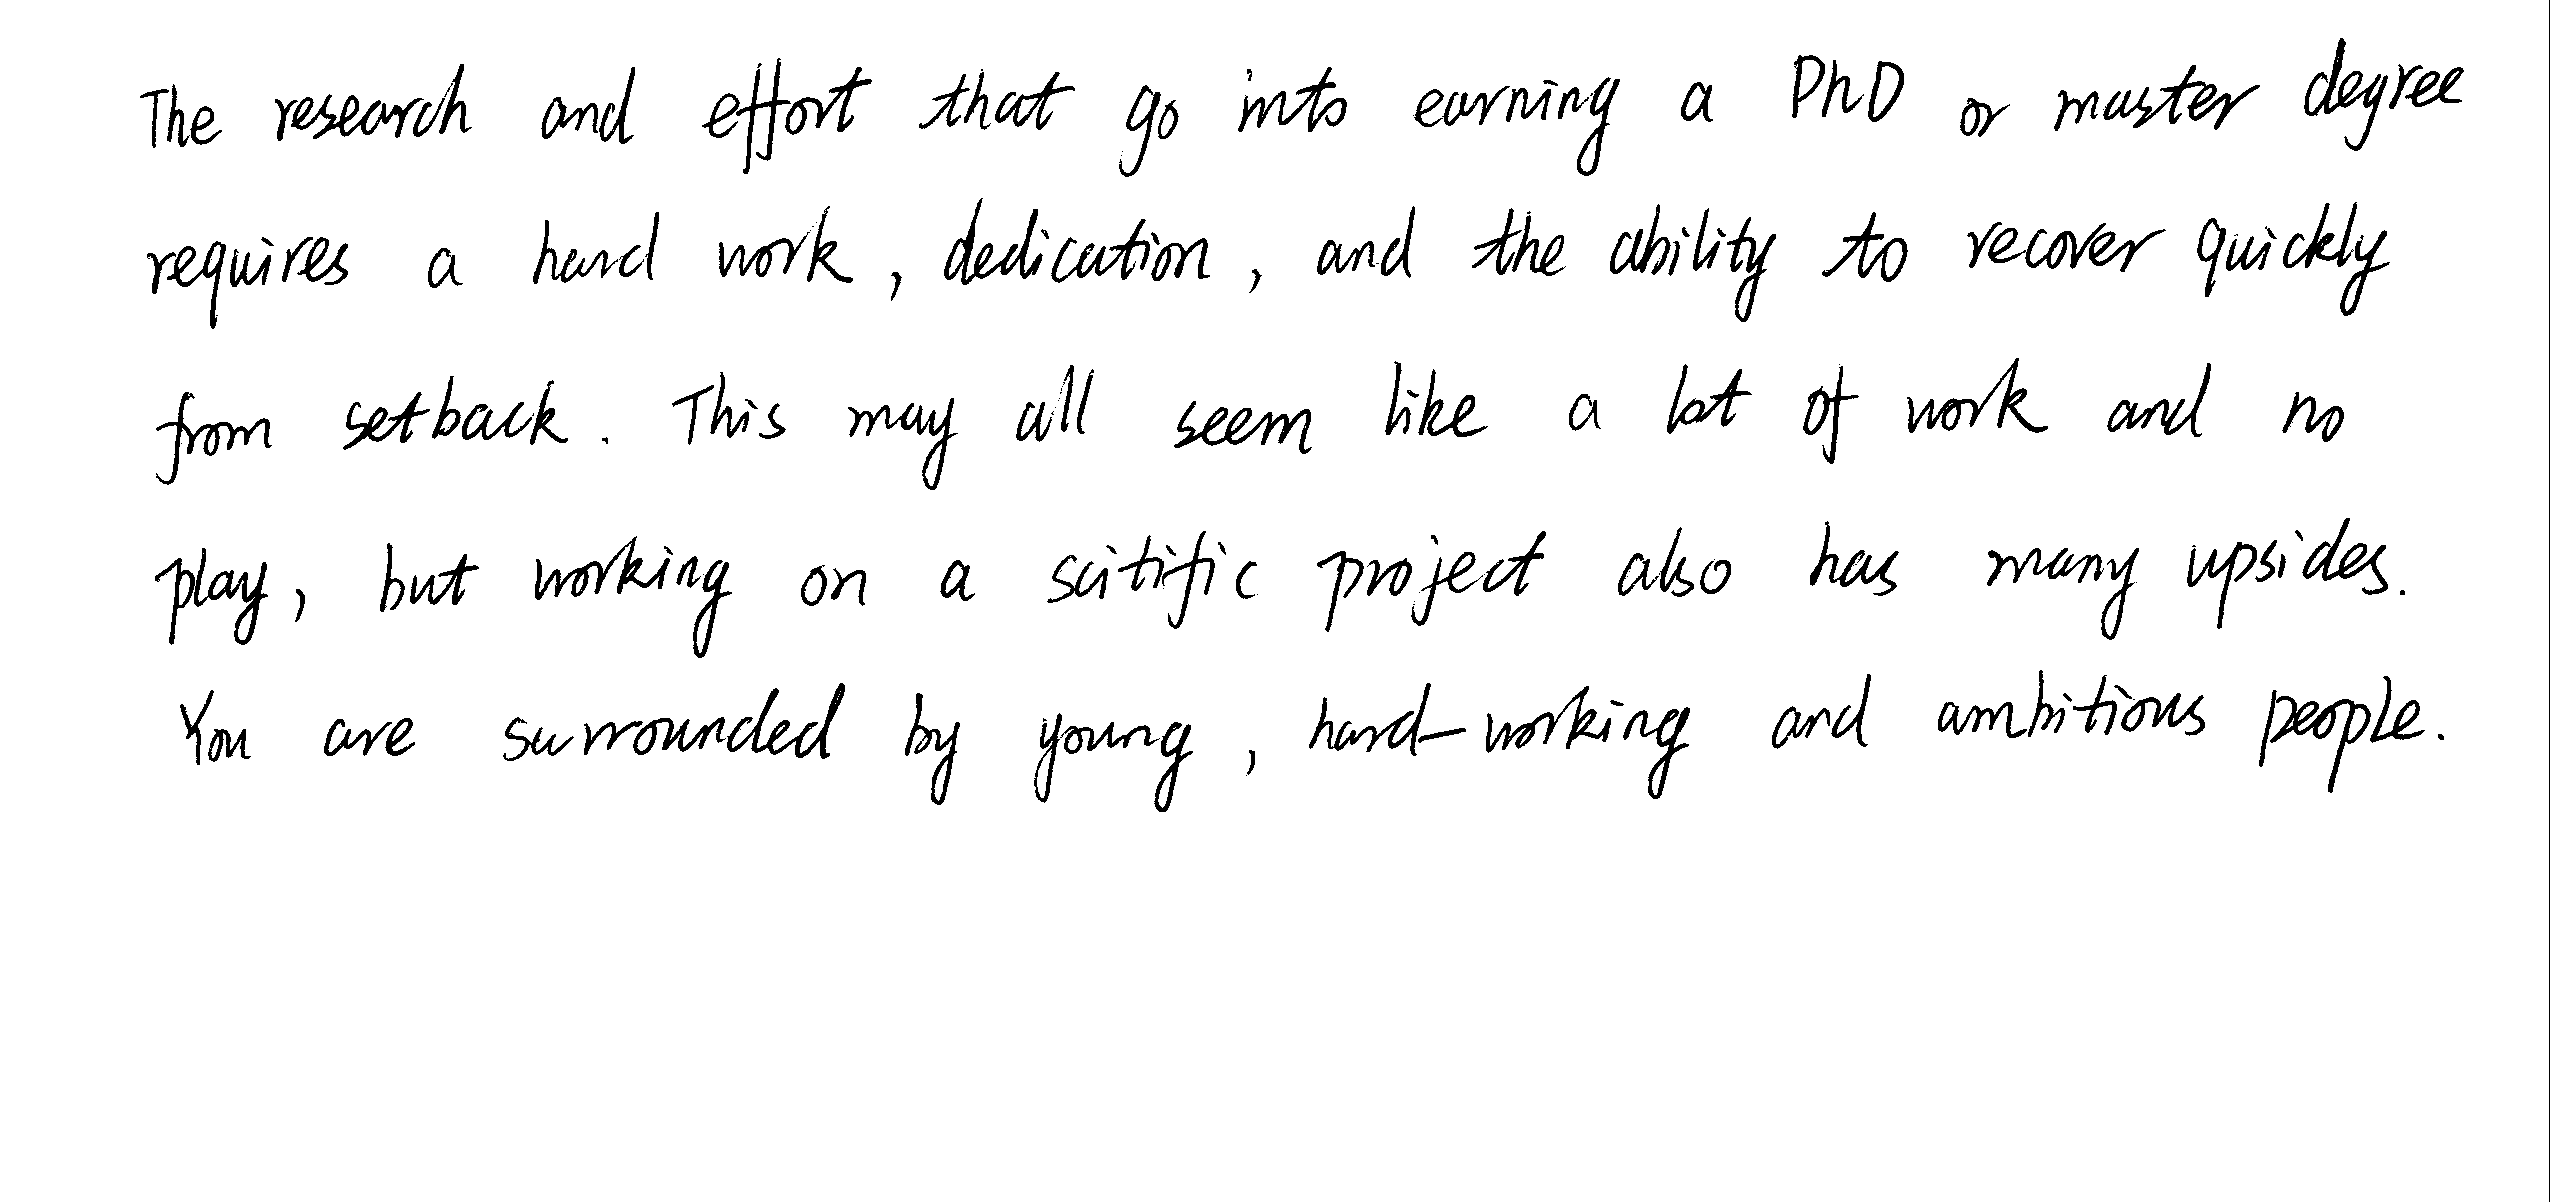 The research and effort that go into earning a PhD or master degree
requires a hard work, dedication, and the ability to recover quickly
from setback. This may all seem like a lot of work and no
play, but working on a scitific project also has many upsides.
You are surrounded by young, hard-working and ambitious people.